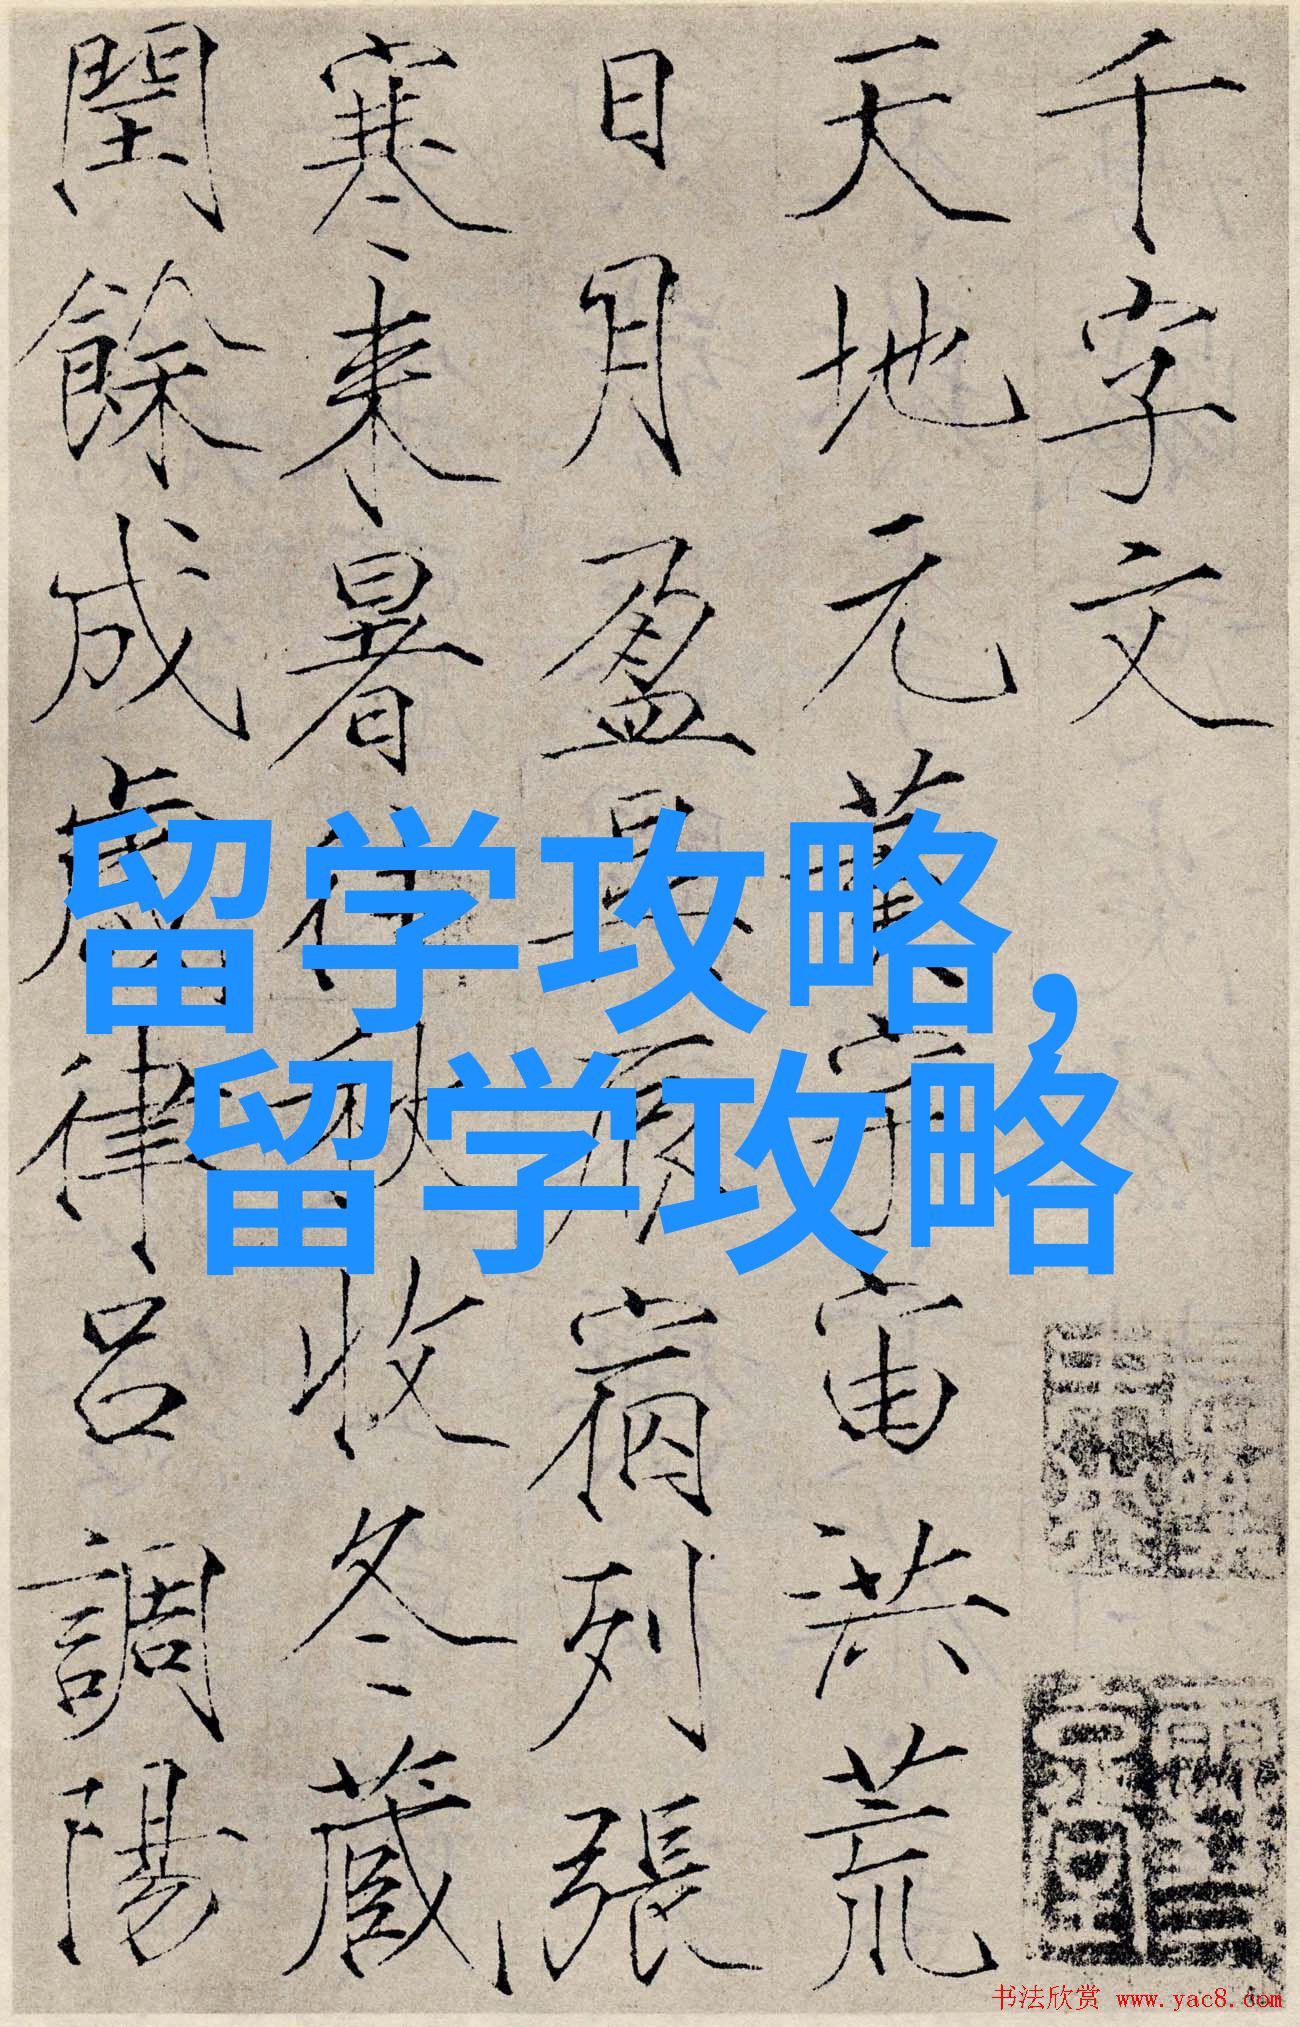 千字文
天地元黃宇宙洪荒
日月盈昃辰宿列張
寒来暑往秋收冬藏
閏餘成歲律呂調陽
留学攻略,
留学攻略
书法欣赏 www.yac8.com